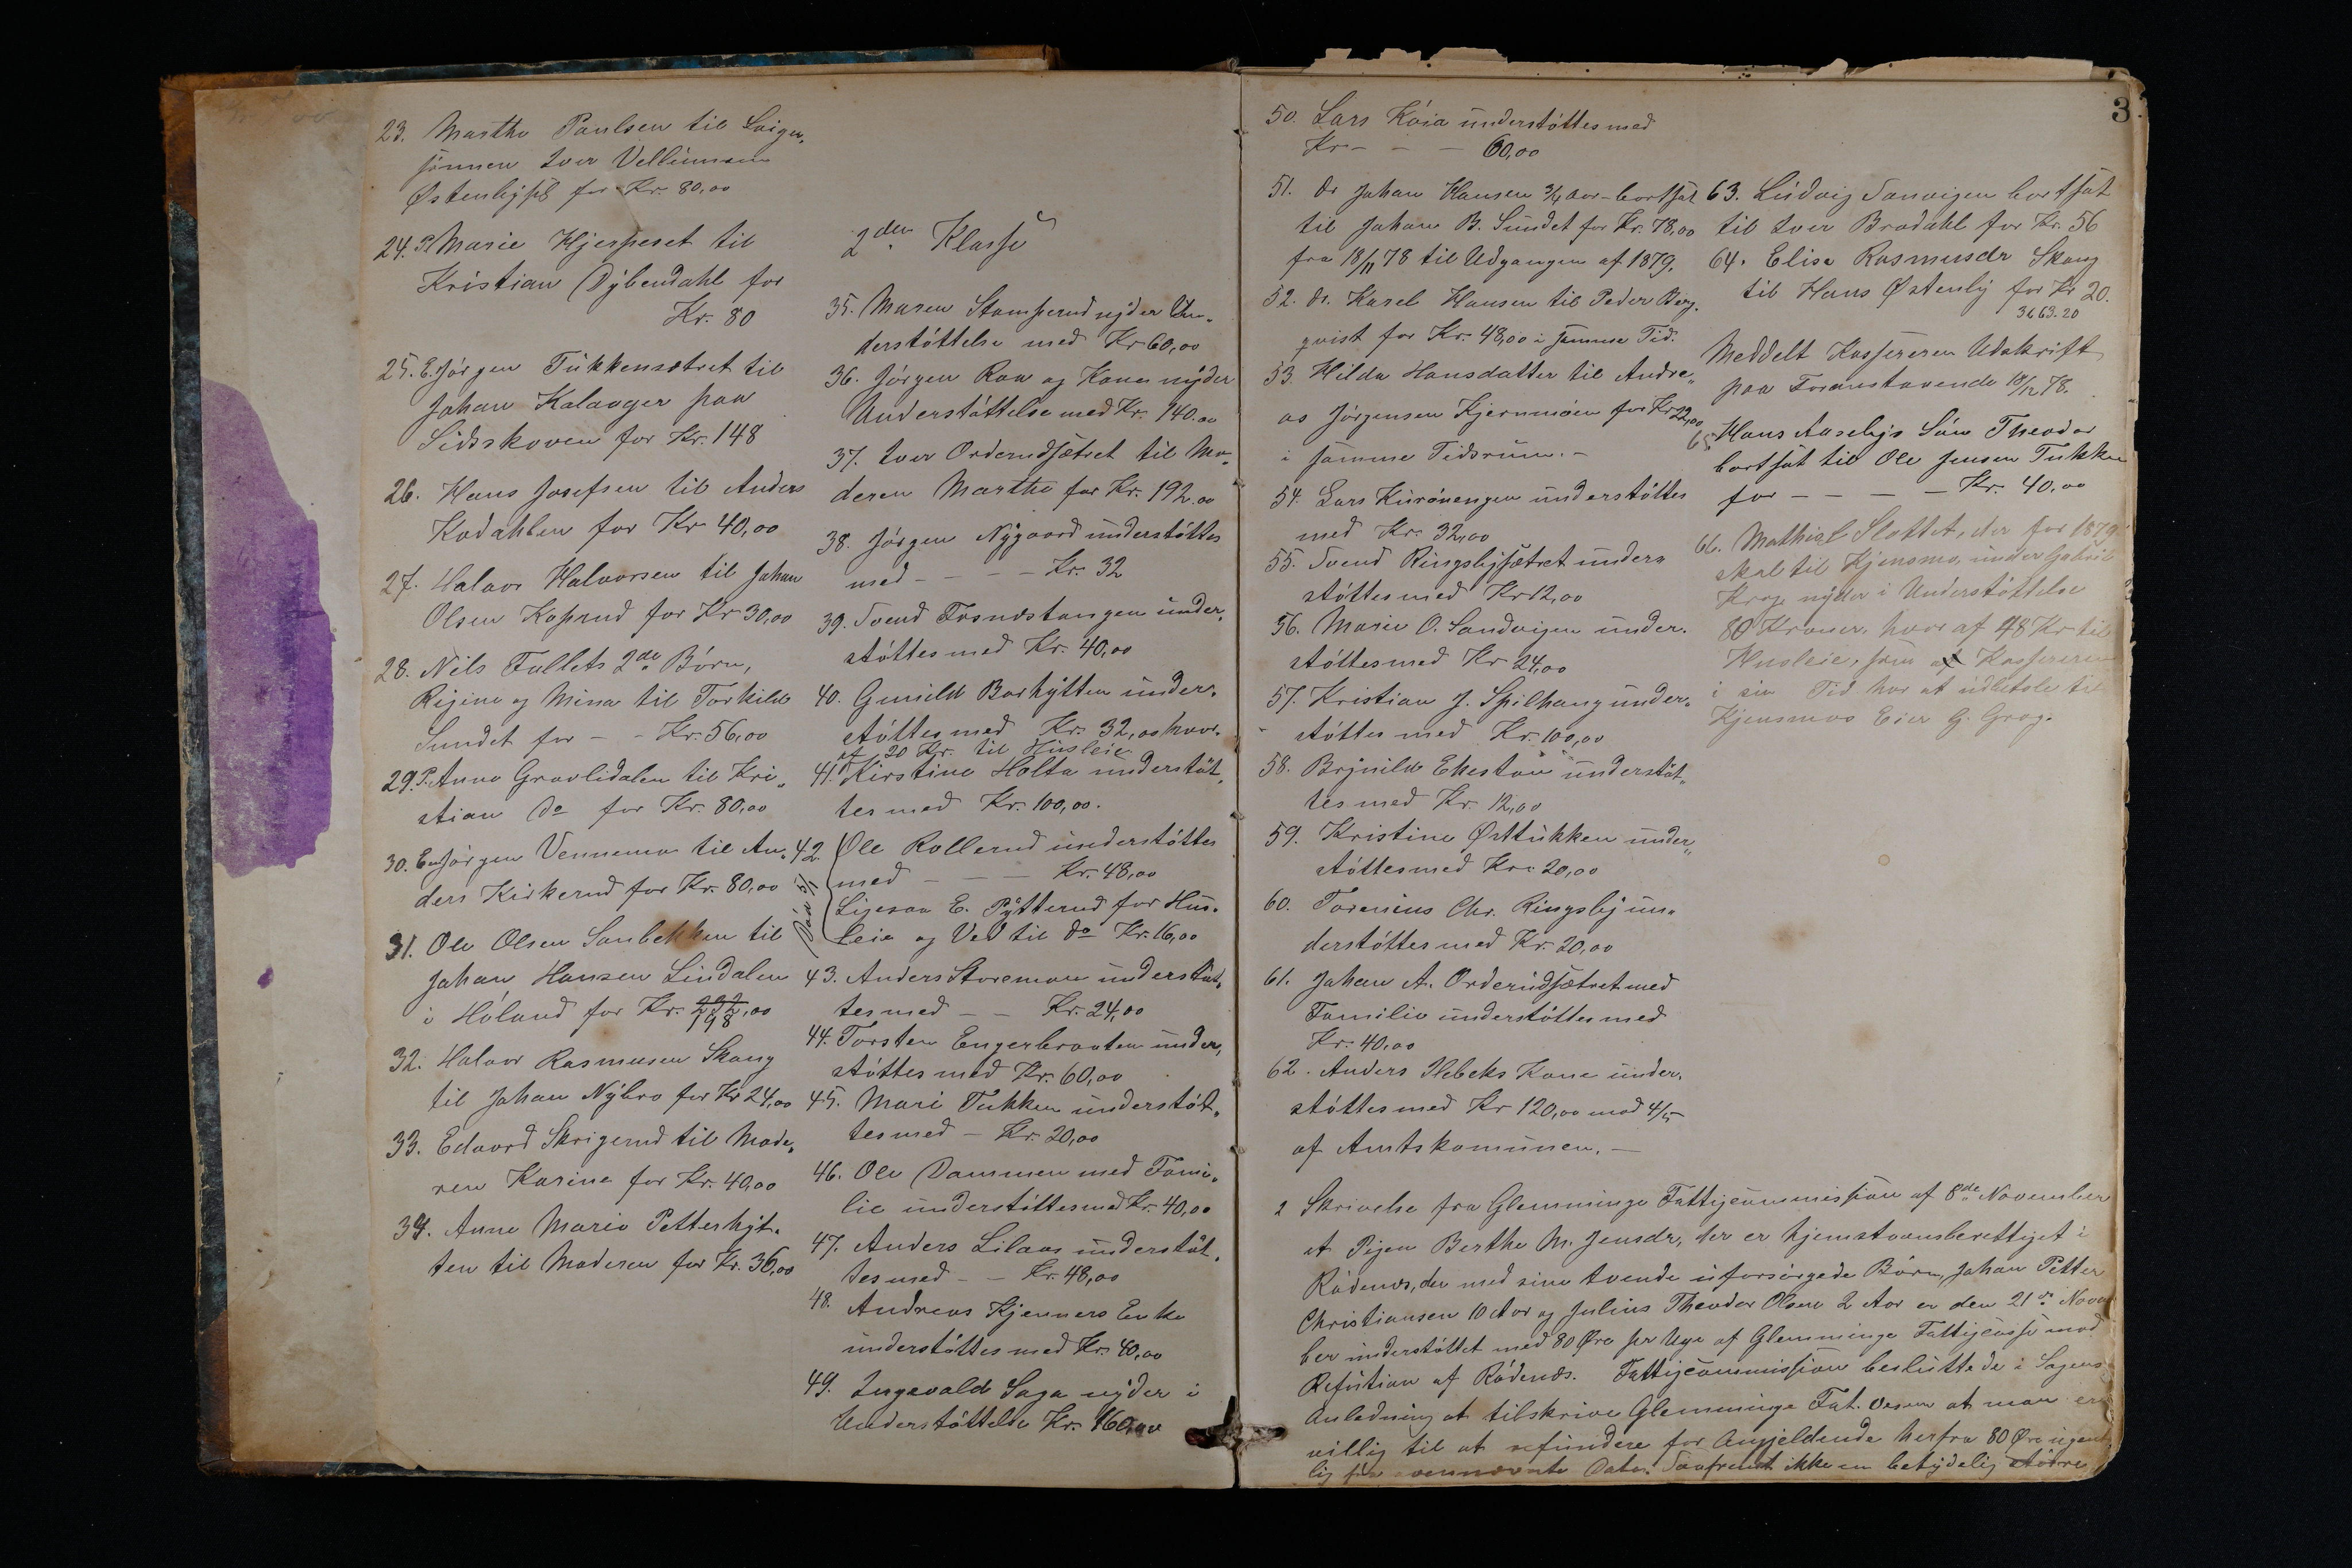 23. Marthe Paulsen til Svigersønnen Iver Vellumsen
Østenbysæt for Kr. 80,00
24. P. Marie Hjerpeset til
Kristian Dybendahl for
Kr. 80
25. E. Jørgen Tukkensætret til
Johan Kalager paa
Sidsskoven for Kr. 148
26. Hans Josefsen til Anders
Kodahlen for Kr 40,00
27. Halvor Halvorsen til Johan
Olsen Kaprud for Kr 30,00
28. Nils Fallets 2de Børn,
Regine og Mina til Torkild
Sundet for - - Kr. 56,00
29. P. Anne Gravlidalen til Kri„
stian do for Kr. 80,00
30. Jørgen Vennemo til An„
ders Kirkerud for Kr. 80,00
31. Ole Olsen Sanbekken til
Johan Hansen Lindalen
i Høland for Kr. 232,00
198
32. Halvor Rasmusen Skaug
til Johan Nybro for Kr 24,00
33. Edvard Skrigerud til Mode„
ren Karine for Kr. 40,00
34. Anne Marie Petterhyt„
ten til Moderen for Kr. 36,00
2den Klasse
35. Maren Stamperud nyder Un„
derstøttelse med Kr 60,00
36. Jørgen Raa og Kone nyder
Understøttelse med Kr. 140.00
37. Iver Orderudsætret til Mo„
deren Marthe for Kr. 192.00
38. Jørgen Nygaard understøttes
med - - - - Kr. 32
39. Svend Fosnæstangen under„
støttes med Kr. 40,00
40. Gunild Barhytten under„
støttes med Kr. 32,00 hvor„
af 20 Kr. til Husleie
41. Kirstine Holta understøt„
tes med Kr. 100,00.
42. Ole Rollerud understøttes
med - - - Kr. 48,00
Ligesaa E. Pytterud for Hus„
leie og Ved til do Kr. 16,00
Død 5/1
43. Anders Storemoen understøt„
tes med - - Kr. 24,00
44. Torsten Engerbraaten under„
støttes med Kr. 60,00
45. Mari Tukken understøt„
tes med - Kr. 20,00
46. Ole Dammen med Fami„
lie understøttes med Kr. 40,00
47. Anders Lilaas understøt„
tes med - - Kr. 48,00
48. Andreas Kjenners Enke
understøttes med Kr. 40,00
49. Ingevald Saga nyder i
Understøttelse Kr. 160,00
3
50. Lars Köia understøttes med
Kr - - - 60,00
51. dr Johan Hansen 3/4 Aar - bortsat
til Johan B. Sundet for Kr. 78,00
fra 18/11 78 til Udgangen af 1879.
52. dr. Karel Hansen til Peder Berg„
qvist for Kr. 48,00 i samme Tid.
53. Hilda Hansdatter til Andre„
as Jørgensen Kjernmoen for Kr 22,00
i samme Tidsrum. -
54. Lars Kurønengen understøttes
med Kr. 32,00
55. Svend Ringsbysætret under„
støttes med Kr 12,00
56. Marie O. Sandvigen under„
støttes med Kr 24,00
57. Kristian J. Spilhaug under„
støttes med Kr. 100,00
58. Brynild Ekestøe understøt„
tes med Kr. 12,00
59. Kristine Østtukken under„
støttes med Kr. 20,00
60. Torenius Chr. Ringsby un„
derstøttes med Kr. 20,00
61. Johan A. Orderudsætret med
Familie understøttes med
Kr. 40,00
62. Anders Ilebeks Kone under„
støttes med Kr 120,00 mod 4/5
af Amtskomunen. -
63. Ludvig Sanvigen bortsat
til Iver Bradahl for Kr. 56
64. Elise Rasmusdr Skaug
til Hans Østenby for Kr 20.
3663.20
Meddelt Kassereren Udskrift
paa Foranstaaende 18/12 78.
65. Hans Aaselys Søn Theodor
bortsat til Ole Jensen Tukken
for - - - - Kr. 40,00
66. Mathias Slottet, der for 1879
skal til Kjensmo, under Gabriel
Krog nyder i Understøttelse
80 Kroner, hvor af 48 Kr til
Husleie, som af Kassereren
i sin Tid har at udbetale til
Kjensmos Eier G. Grog.
2 Skrivelse fra Glemminge Fattigcommission af 8de November
at Pigen Berthe M. Jensdr, der er hjemstavnsberettiget i
Rødenæs, der med sine tvende uforsørgede Børn, Johan Petter
Christiansen 10 Aar og Julius Theodor Olsen 2 Aar er den 21de Novem
ber understøttet med 80 Øre pr Uge af Glemminge Fattigcasse mod
Refution af Rødenæs. Fattigcommission besluttede i Sagens
Anledning at tilskrive Glemminge Fat. væsen at man er
villig til at refundere for Angjeldende herfra 80 Øre ugent
lig fra Dato. Saafremt ikke en betydelig større